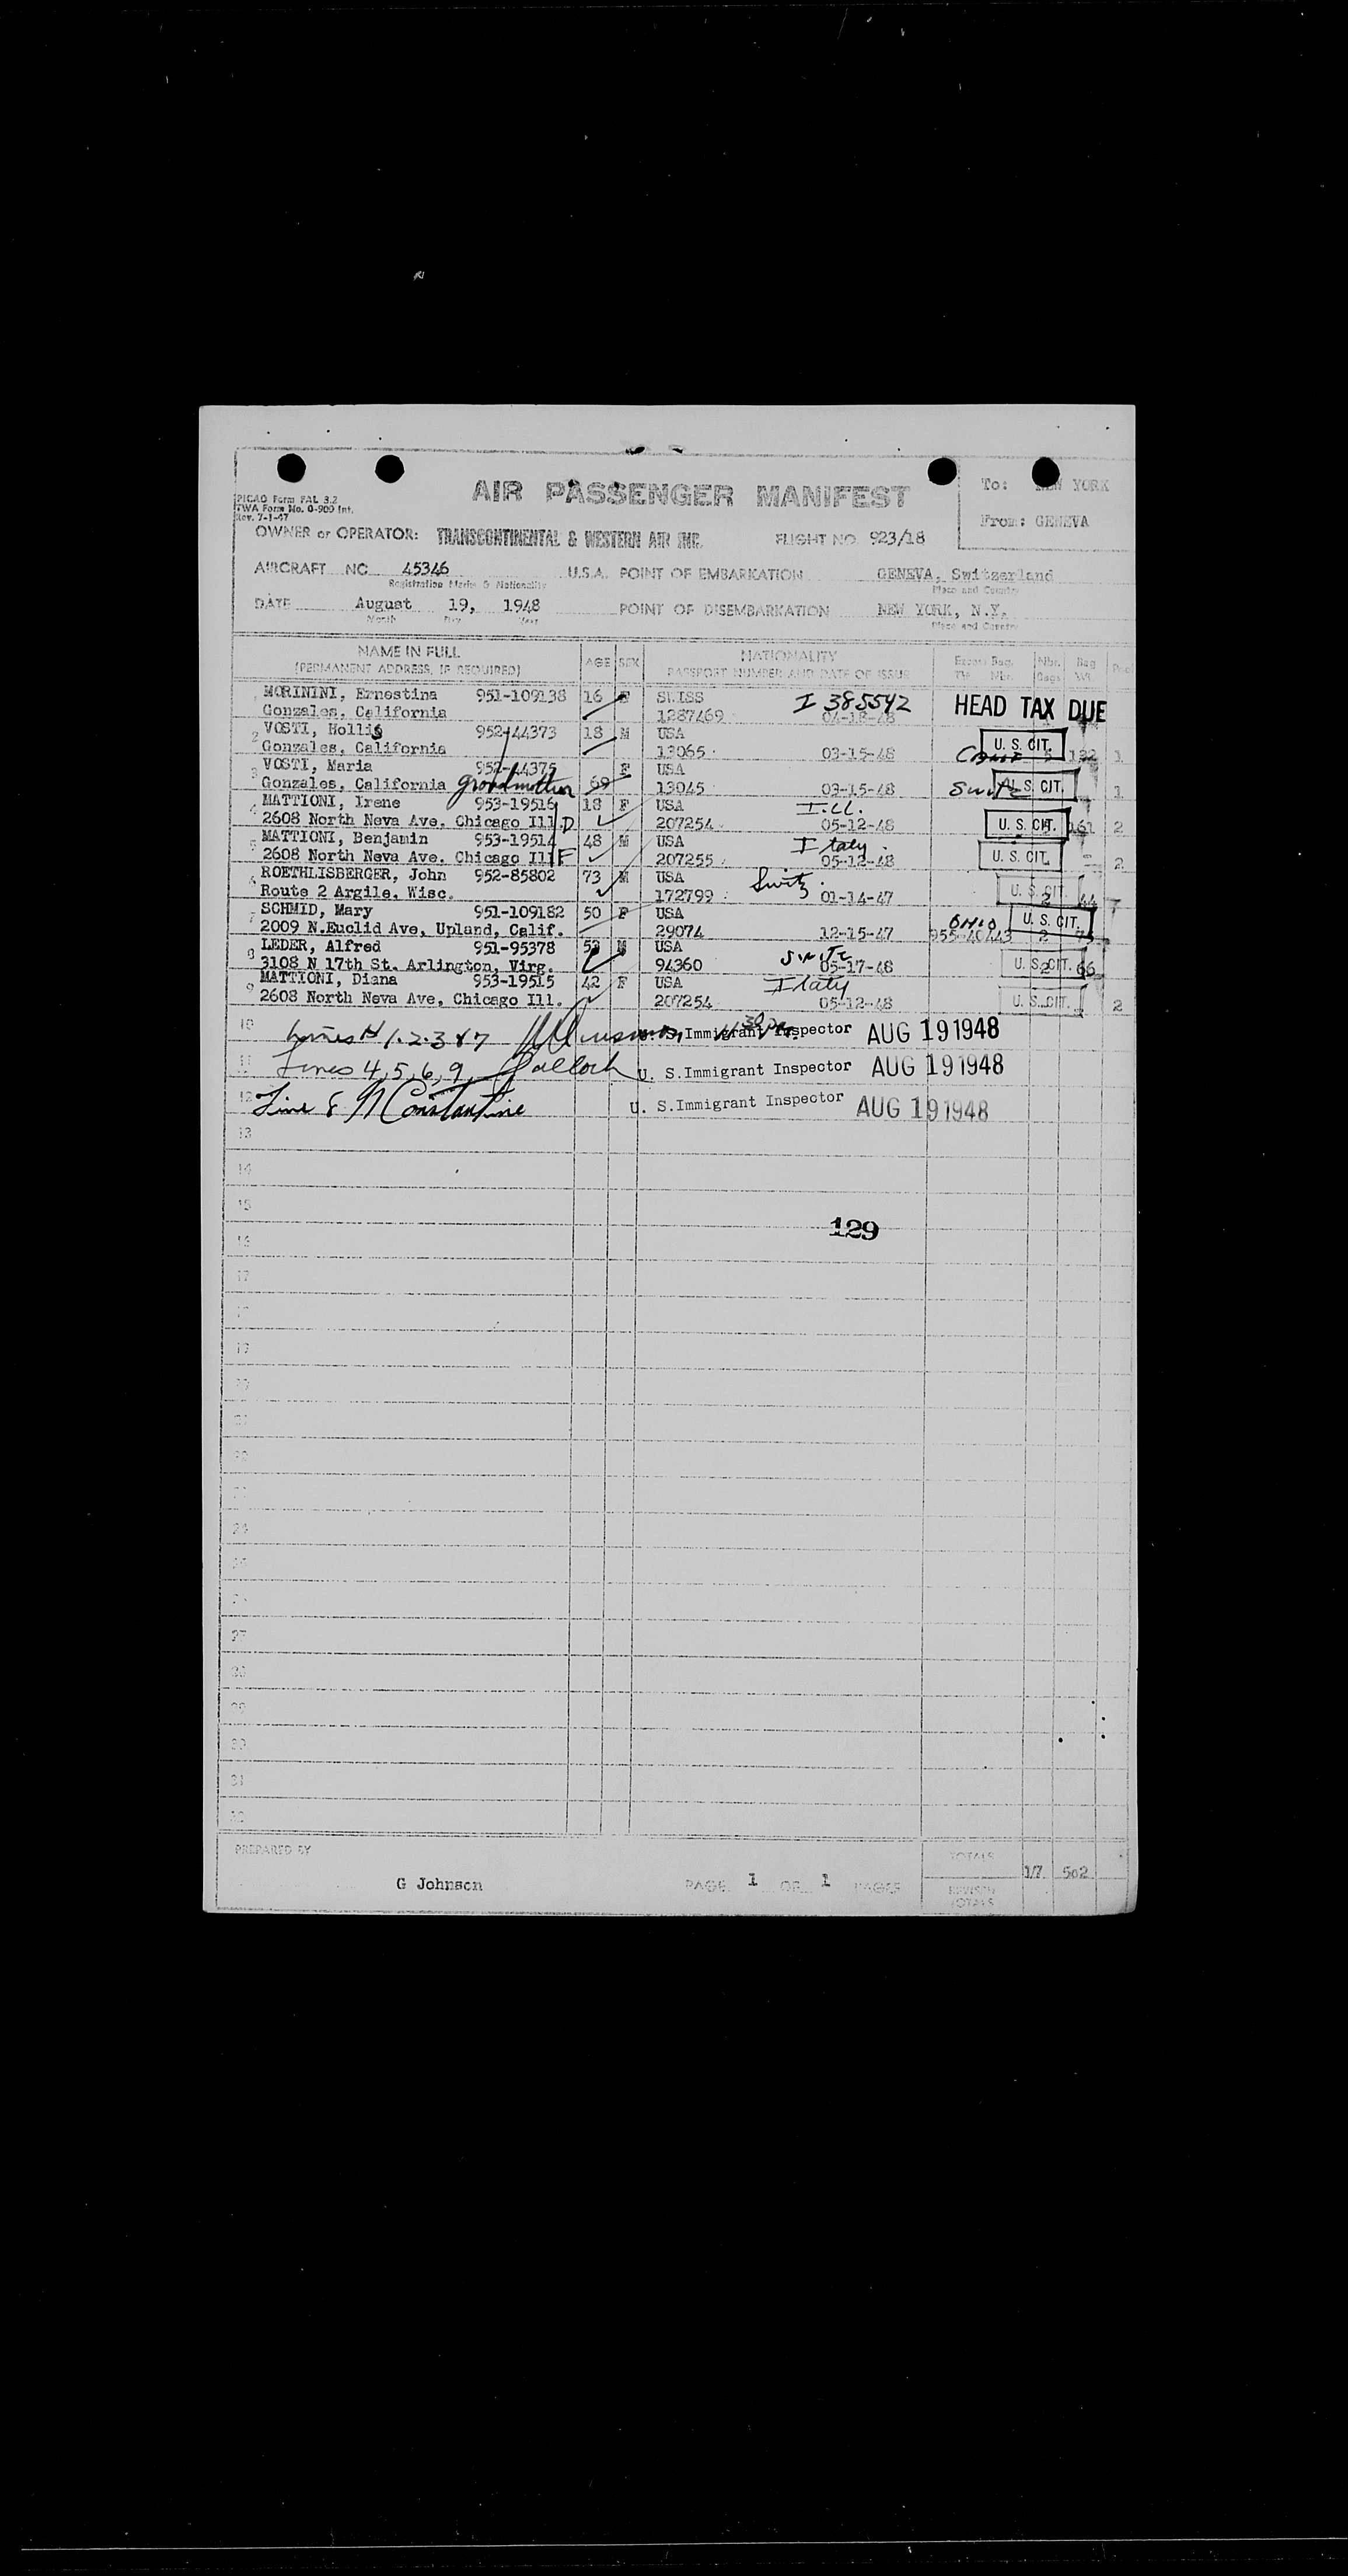 PICAO Form FAL 3.2
TWA Form No. 0-909 Int.
Rev. 7-1-47
AIR PASSENGER MANIFEST
To: NEW YORK
From: GENEVA
OWNER or OPERATOR: TRANSCONTINENTAL & WESTERN AIR INC. FLIGHT NO. 923/18
AIRCRAFT NC 45346 U.S.A. POINT OF EMBARKATION GENEVA, Switzerland
Registration Marks & Nationality Place and Country
DATE August 19, 1948 POINT OF DISEMBARKATION NEW YORK, N.Y.
Month Day Year Place and Country
NAME IN FULL AGE SEX NATIONALITY Excess Bag. Nbr. Bag
(PERMANENT ADDRESS, IF REQUIRED) PASSPORT NUMBER AND DATE OF ISSUE Tkt. Nbr. Bags Wt.
1 MORININI, Ernestina 951-109138 16 F SWISS I 385542 HEAD TAX DUE
Gonzales, California 1287469 04-18-48
2 VOSTI, Hollis 952-44373 18 M USA U. S. CIT.
Gonzales, California 13065 03-15-48 132 1
3 VOSTI, Maria 952-44375 69 F USA U. S. CIT.
Gonzales, California grandmother 13045 03-15-48 Switz 1
4 MATTIONI, Irene 953-19516 18 F USA Ill. U. S. CIT.
2608 North Neva Ave. Chicago Ill D 207254 05-12-48 161 2
5 MATTIONI, Benjamin 953-19514 48 M USA Italy U. S. CIT.
2608 North Neva Ave. Chicago Ill F 207255 05-12-48 2
6 ROETHLISBERGER, John 952-85802 73 M USA Switz. U. S. CIT.
Route 2 Argile. Wisc. 172799 01-14-47 2 44
7 SCHMID, Mary 951-109182 50 F USA OHIO U. S. CIT.
2009 N.Euclid Ave, Upland, Calif. 29074 12-15-47 955-40443 2
8 LEDER, Alfred 951-95378 53 M USA Switz U. S. CIT.
3108 N 17th St. Arlington, Virg. 94360 05-17-48 2 66
9 MATTIONI, Diana 953-19515 42 F USA Italy U. S. CIT.
2608 North Neva Ave, Chicago Ill. 207254 05-12-48 2
10 Lines # 1.2.3 & 7 U. S.Immigrant Inspector AUG 19 1948
11 Lines 4, 5, 6, 9 U. S.Immigrant Inspector AUG 19 1948
12 Line 8 N Constantine U. S.Immigrant Inspector AUG 19 1948
13
14
15
129
16
17
19
24
27
30
31
32
PREPARED BY G Johnson PAGE 1 OF 1 PAGES TOTALS 17 502
REVISED TOTALS